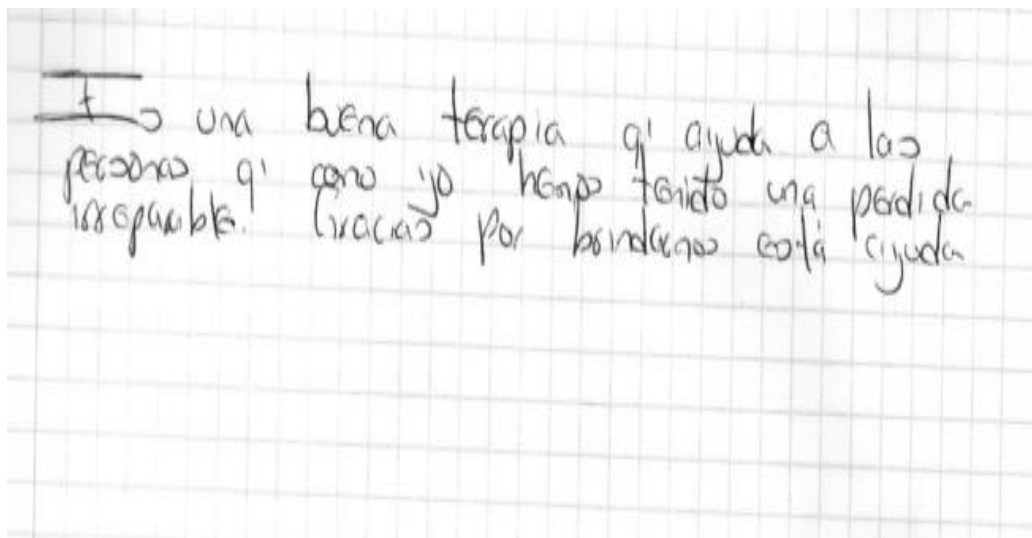 Es una buena terapia q' ayuda a las
personas q' como yo hemos tenido una perdida
irreparable. Gracias por brindarnos está ayuda